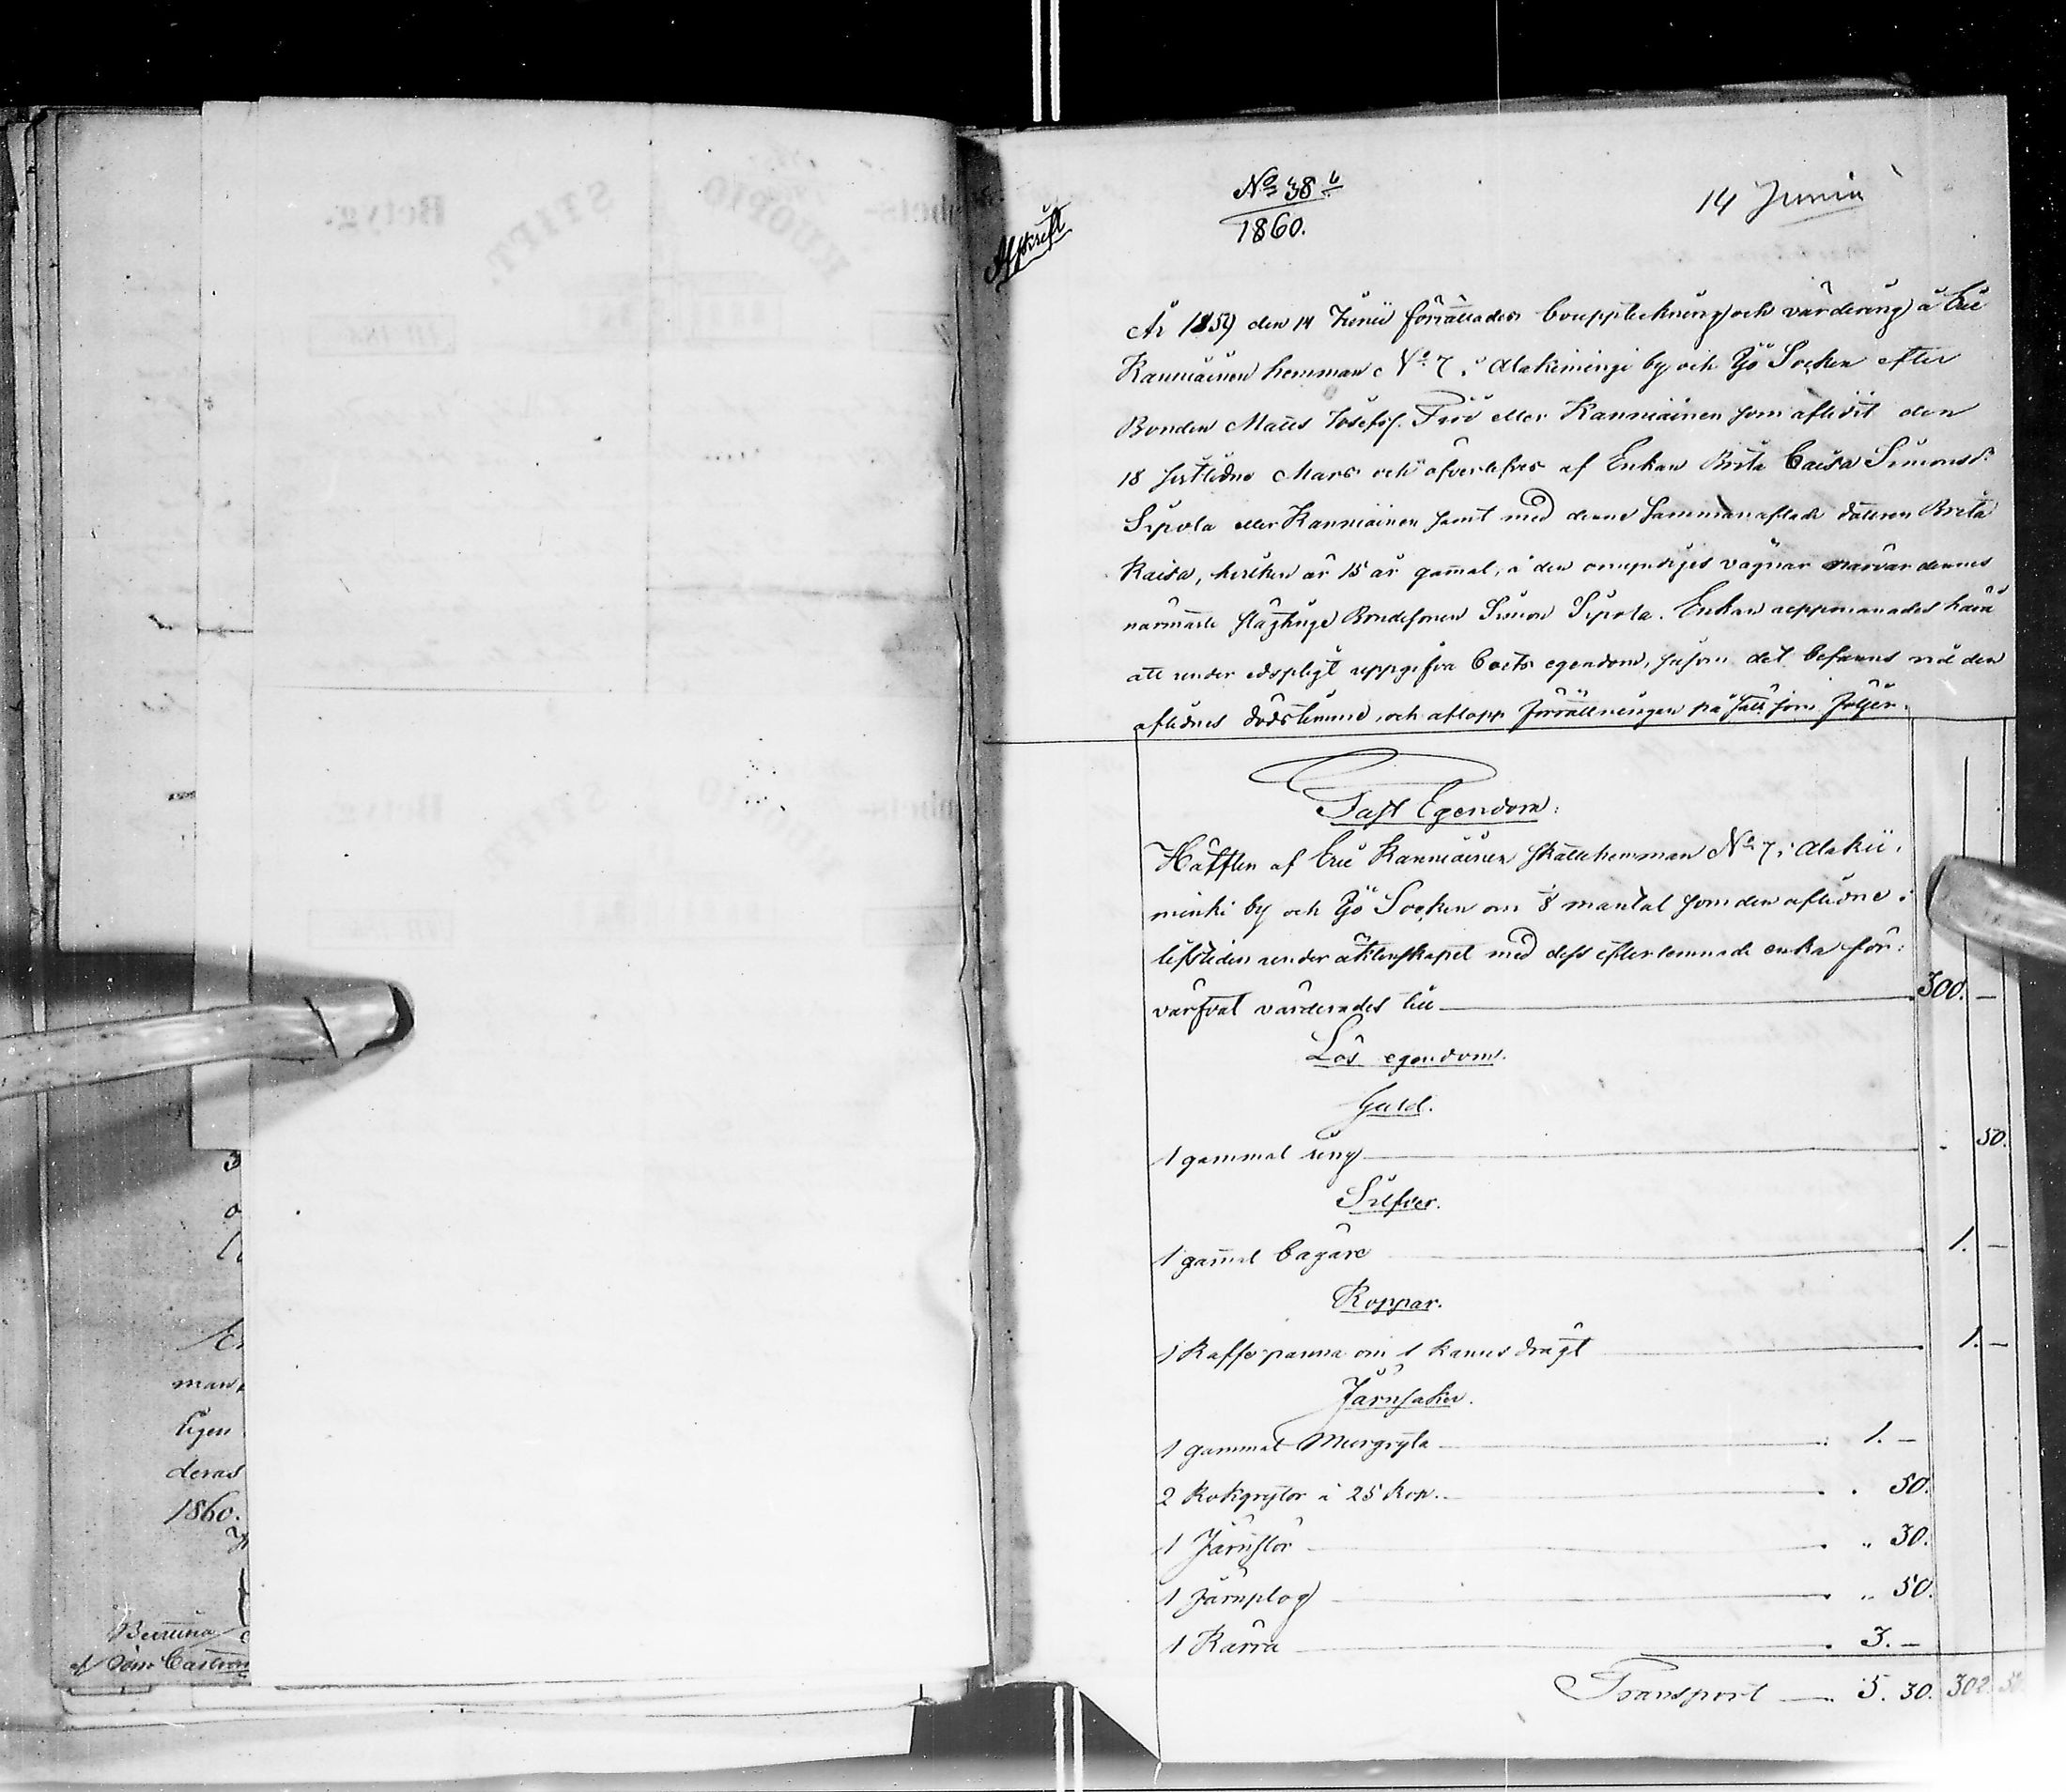 No 38 b
1860.
14 Junii
Afskrift
År 1859 den 14 Junii förrättades bouppteckning och värdering å Eric
Kanniainen hemman No 7 i Alakiiminge by och Ijö Socken efter
Bonden Matts Josefss. Friö eller Kanniainen som aflidit den
18 sistlidne Mars och öfverlefves af Enkan Brita Caisa Simonsdr
Sipola eller Kanniainen samt med denne sammanaflade dottren Brita
Kaisa, hvilken är 15 år gamal, å den omyndiges vägnar närvar dennes
närmaste slägtinge Bondesonen Simon Sipola. Enkan uppmanades
att under edspligt uppgifva boets egendom, såsom det befanns vid den
aflidnes dödstimme, och aflopp förrättningen på sätt som följer.
Fast Egendom:
Hälften af Eric Kanniainen skattehemman No 7 i Alakii-
minki by och Ijö Socken om 1/8 mantal som den aflidne i
lifstiden under äktenskapet med dess efterlemnade enka för-
värfvat värderades till 300. —
Lös egendom.
Guld.
1 gammal ring . 50.
Silfver.
1 gamal bägare 1. —
Koppar.
1 Kaffepanna om 1 kannes drägt 1. —
Järnsaker.
1 gammal Murgryta 1. —
2 Kokgrytor à 25 Kop. . 50.
1 Järnstör " 30.
1 Järnplog " 50.
1 Kärra 3. —
Transport 5. 30. 302. 50.
Betyg.
STIFT.
KUOPIO
Betyg.
STIFT.
man
ligen
deras
1860.